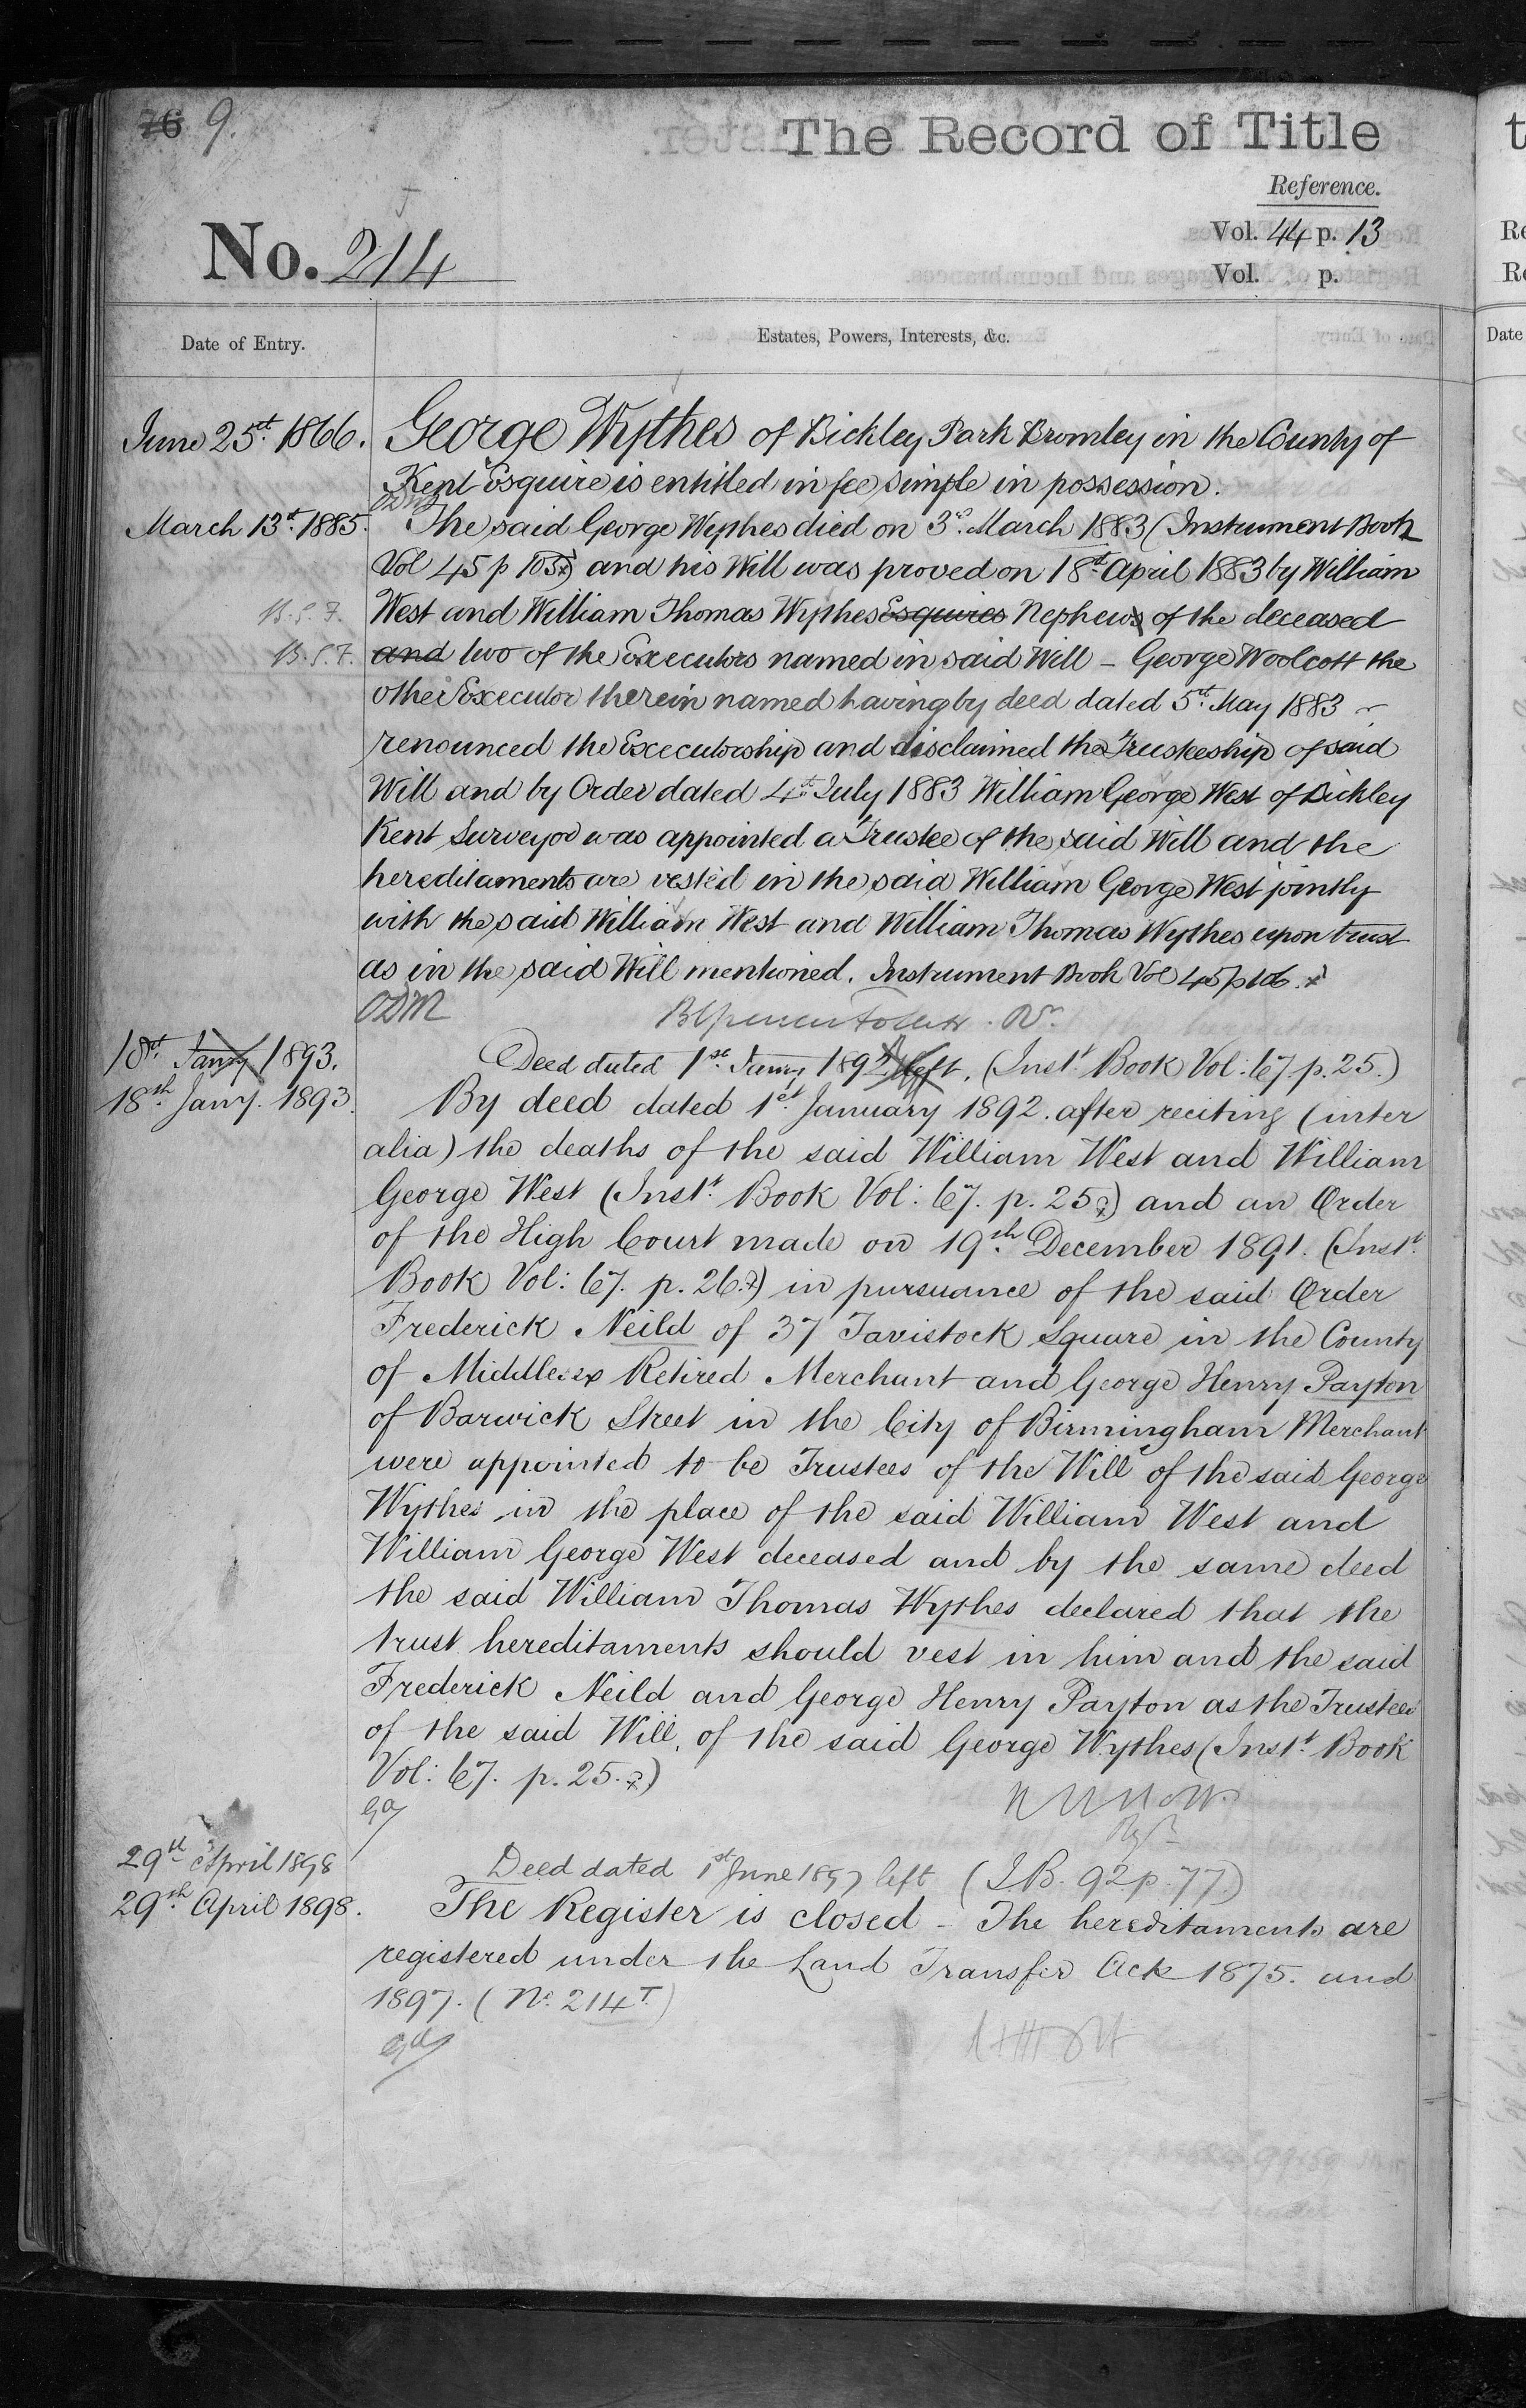 76 9.
The Record of Title
Reference.
Vol. 44 p. 13
No. 214
Vol. p.
Date of Entry.
Estates, Powers, Interests, &c.
June 25th 1866. George Wythes of Bickley Park Bromley in the County of
Kent Esquire is entitled in fee simple in possession.
ODM
March 13th 1885. The said George Wythes died on 3rd March 1883 (Instrument Book
Vol 45 p 105) and his Will was proved on 18th April 1883 by William
B.S.F. West and William Thomas Wythes Esquires Nephews of the deceased
B.S.F. and two of the Executors named in said Will – George Woolcott the
other Executor therein named having by deed dated 5th May 1883
renounced the Executorship and disclaimed the Trusteeship of said
Will and by Order dated 4th July 1883 William George West of Bickley
Kent Surveyor was appointed a Trustee of the said Will and the
hereditaments are vested in the said William George West jointly
with the said William West and William Thomas Wythes upon trust
as in the said Will mentioned. Instrument Book Vol 45 p 106.
ODM
18th Jany 1893. Deed dated 1st Jany 1892 left. (Inst. Book Vol: 67. p. 25.)
18th Jany. 1893. By deed dated 1st January 1892. after reciting (inter
alia) the deaths of the said William West and William
George West (Instt. Book Vol: 67. p. 25) and an Order
of the High Court made on 19th December 1891. (Instt.
Book Vol: 67. p. 26.) in pursuance of the said Order
Frederick Neild of 37 Tavistock Square in the County
of Middlesex Retired Merchant and George Henry Payton
of Barwick Street in the City of Birmingham Merchant
were appointed to be Trustees of the Will of the said George
Wythes in the place of the said William West and
William George West deceased and by the same deed
the said William Thomas Wythes declared that the
trust hereditaments should vest in him and the said
Frederick Neild and George Henry Payton as the Trustees
of the said Will, of the said George Wythes (Instt. Book
Vol: 67. p. 25.)
29th April 1898 Deed dated 1st June 1897 left (I.B. 92 p. 77.)
29th April 1898. The Register is closed – The hereditaments are
registered under the Land Transfer Act 1875. and
1897. (No. 214 T.)